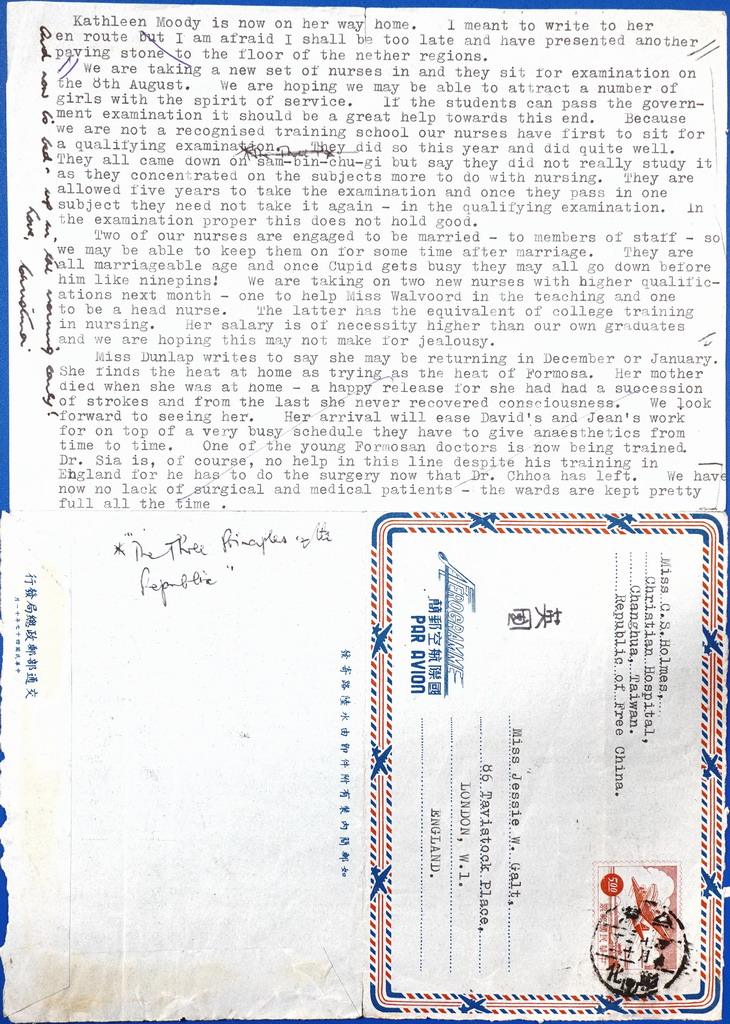 Kathleen Moody is now on her way home. I meant to write to her
en route but I am afraid I shall be too late and have presented another
paving stone to the floor of the nether regions.
We are taking a new set of nurses in and they sit for examination on
the 8th August. We are hoping we may be able to attract a number of
girls with the spirit of service. If the students can pass the govern-
ment examination it should be a great help towards this end. Because
we are not a recognised training school our nurses have first to sit for
a qualifying examination. They did so this year and did quite well.
They all came down on sam-bin-chu-gi but say they did not really study it
as they concentrated on the subjects more to do with nursing. They are
allowed five years to take the examination and once they pass in one
subject they need not take it again - in the qualifying examination. In
the examination proper this does not hold good.
Two of our nurses are engaged to be married - to members of staff - so
we may be able to keep them on for some time after marriage. They are
all marriageable age and once Cupid gets busy they may all go down before
him like ninepins! We are taking on two new nurses with higher qualific-
ations next month - one to help Miss Walvoord in the teaching and one
to be a head nurse. The latter has the equivalent of college training
in nursing. Her salary is of necessity higher than our own graduates
and we are hoping this may not make for jealousy.
Miss Dunlap writes to say she may be returning in December or January.
She finds the heat at home as trying as the heat of Formosa. Her mother
died when she was at home - a happy release for she had had a succession
of strokes and from the last she never recovered consciousness. We look
forward to seeing her. Her arrival will ease David's and Jean's work
for on top of a very busy schedule they have to give anaesthetics from
time to time. One of the young Formosan doctors is now being trained.
Dr. Sia is, of course, no help in this line despite his training in
England for he has to do the surgery now that Dr. Chhoa has left. We have
now no lack of surgical and medical patients - the wards are kept pretty
full all the time .
And now to bed - up in the morning early!
Love,
* "The Three Principles of the
Republic"
如郵簡內裝有附件卽由水陸路寄發
交通部郵政總局發行
中華民國四十七年十一月
AEROGRAMME
國際航空郵簡
PAR AVION
英國
Miss C.S.Holmes,
Christian Hospital,
Changhua, Taiwan.
Republic of Free China.
Miss Jessie W. Galt,
86 Tavistock Place,
LONDON, W.1.
ENGLAND.
500